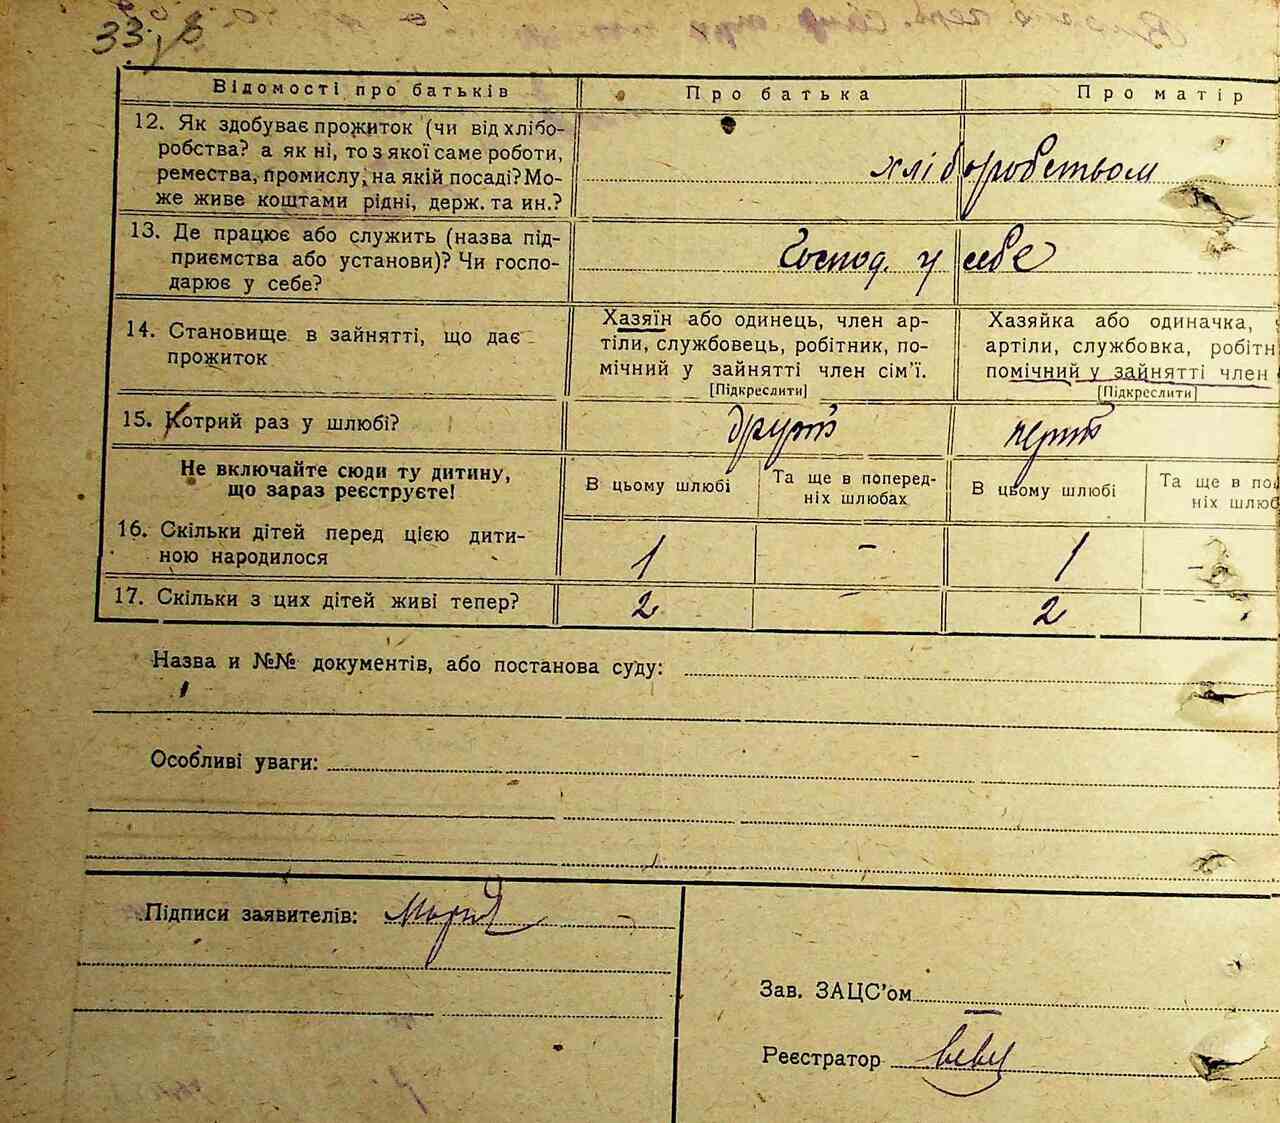 33
Відомості про батьків Про батька Про матір
12. Як здобуває прожиток (чи від хлібо-
робства? а як ні, то з якої саме роботи,
ремества, промислу, на якій посаді? Мо-
же живе коштами рідні, держ. та ин.?
хліборобством
13. Де працює або служить (назва під-
приємства або установи)? Чи госпо-
дарює у себе?
Господ. у себе
14. Становище в зайнятті, що дає
прожиток
Хазяїн або одинець, член ар-
тіли, службовець, робітник, по-
мічний у зайнятті член сім'ї.
[Підкреслити]
Хазяйка або одиначка,
артіли, службовка, робітн
помічний у зайнятті член
[Підкреслити]
15. Котрий раз у шлюбі?
Не включайте сюди ту дитину,
що зараз реєструєте!
В цьому шлюбі
Та ще в поперед-
ніх шлюбах
В цьому шлюбі
Та ще в по
ніх шлюб
16. Скільки дітей перед цією дити-
ною народилося
1 – 1 –
17. Скільки з цих дітей живі тепер?
2 – 2 –
Назва и №№ документів, або постанова суду:
Особливі уваги:
Підписи заявителів:
Зав. ЗАЦС'ом
Реєстратор